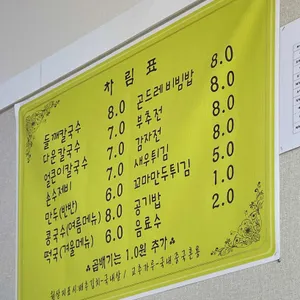 차 림 표
들깨칼국수 8.0
다운칼국수 7.0
얼큰이칼국수 7.0
손수제비 7.0
만두(반반) 6.0
콩국수(여름메뉴) 8.0
떡국(겨울메뉴) 6.0
곤드레비빔밥 8.0
부추전 8.0
감자전 8.0
새우튀김 5.0
꼬마만두튀김 5.0
공기밥 1.0
음료수 2.0
♣곱빼기는 1.0원 추가♣